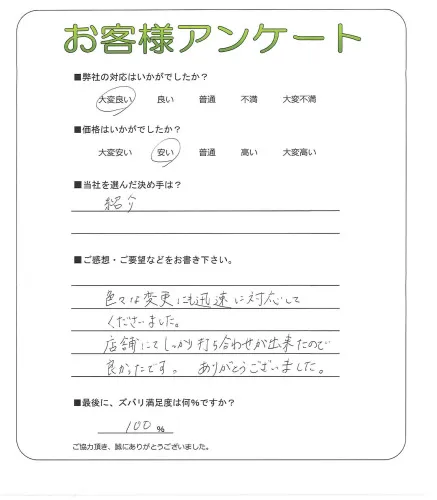 お客様アンケート
■弊社の対応はいかがでしたか？
大変良い 良い 普通 不満 大変不満
■価格はいかがでしたか？
大変安い 安い 普通 高い 大変高い
■当社を選んだ決め手は？
紹介
■ご感想・ご要望などをお書き下さい。
色々な変更にも迅速に対応して
くださいました。
店舗にてしっかり打ち合わせが出来たので
良かったです。 ありがとうございました。
■最後に、ズバリ満足度は何%ですか？
100 %
ご協力頂き、誠にありがとうございました。